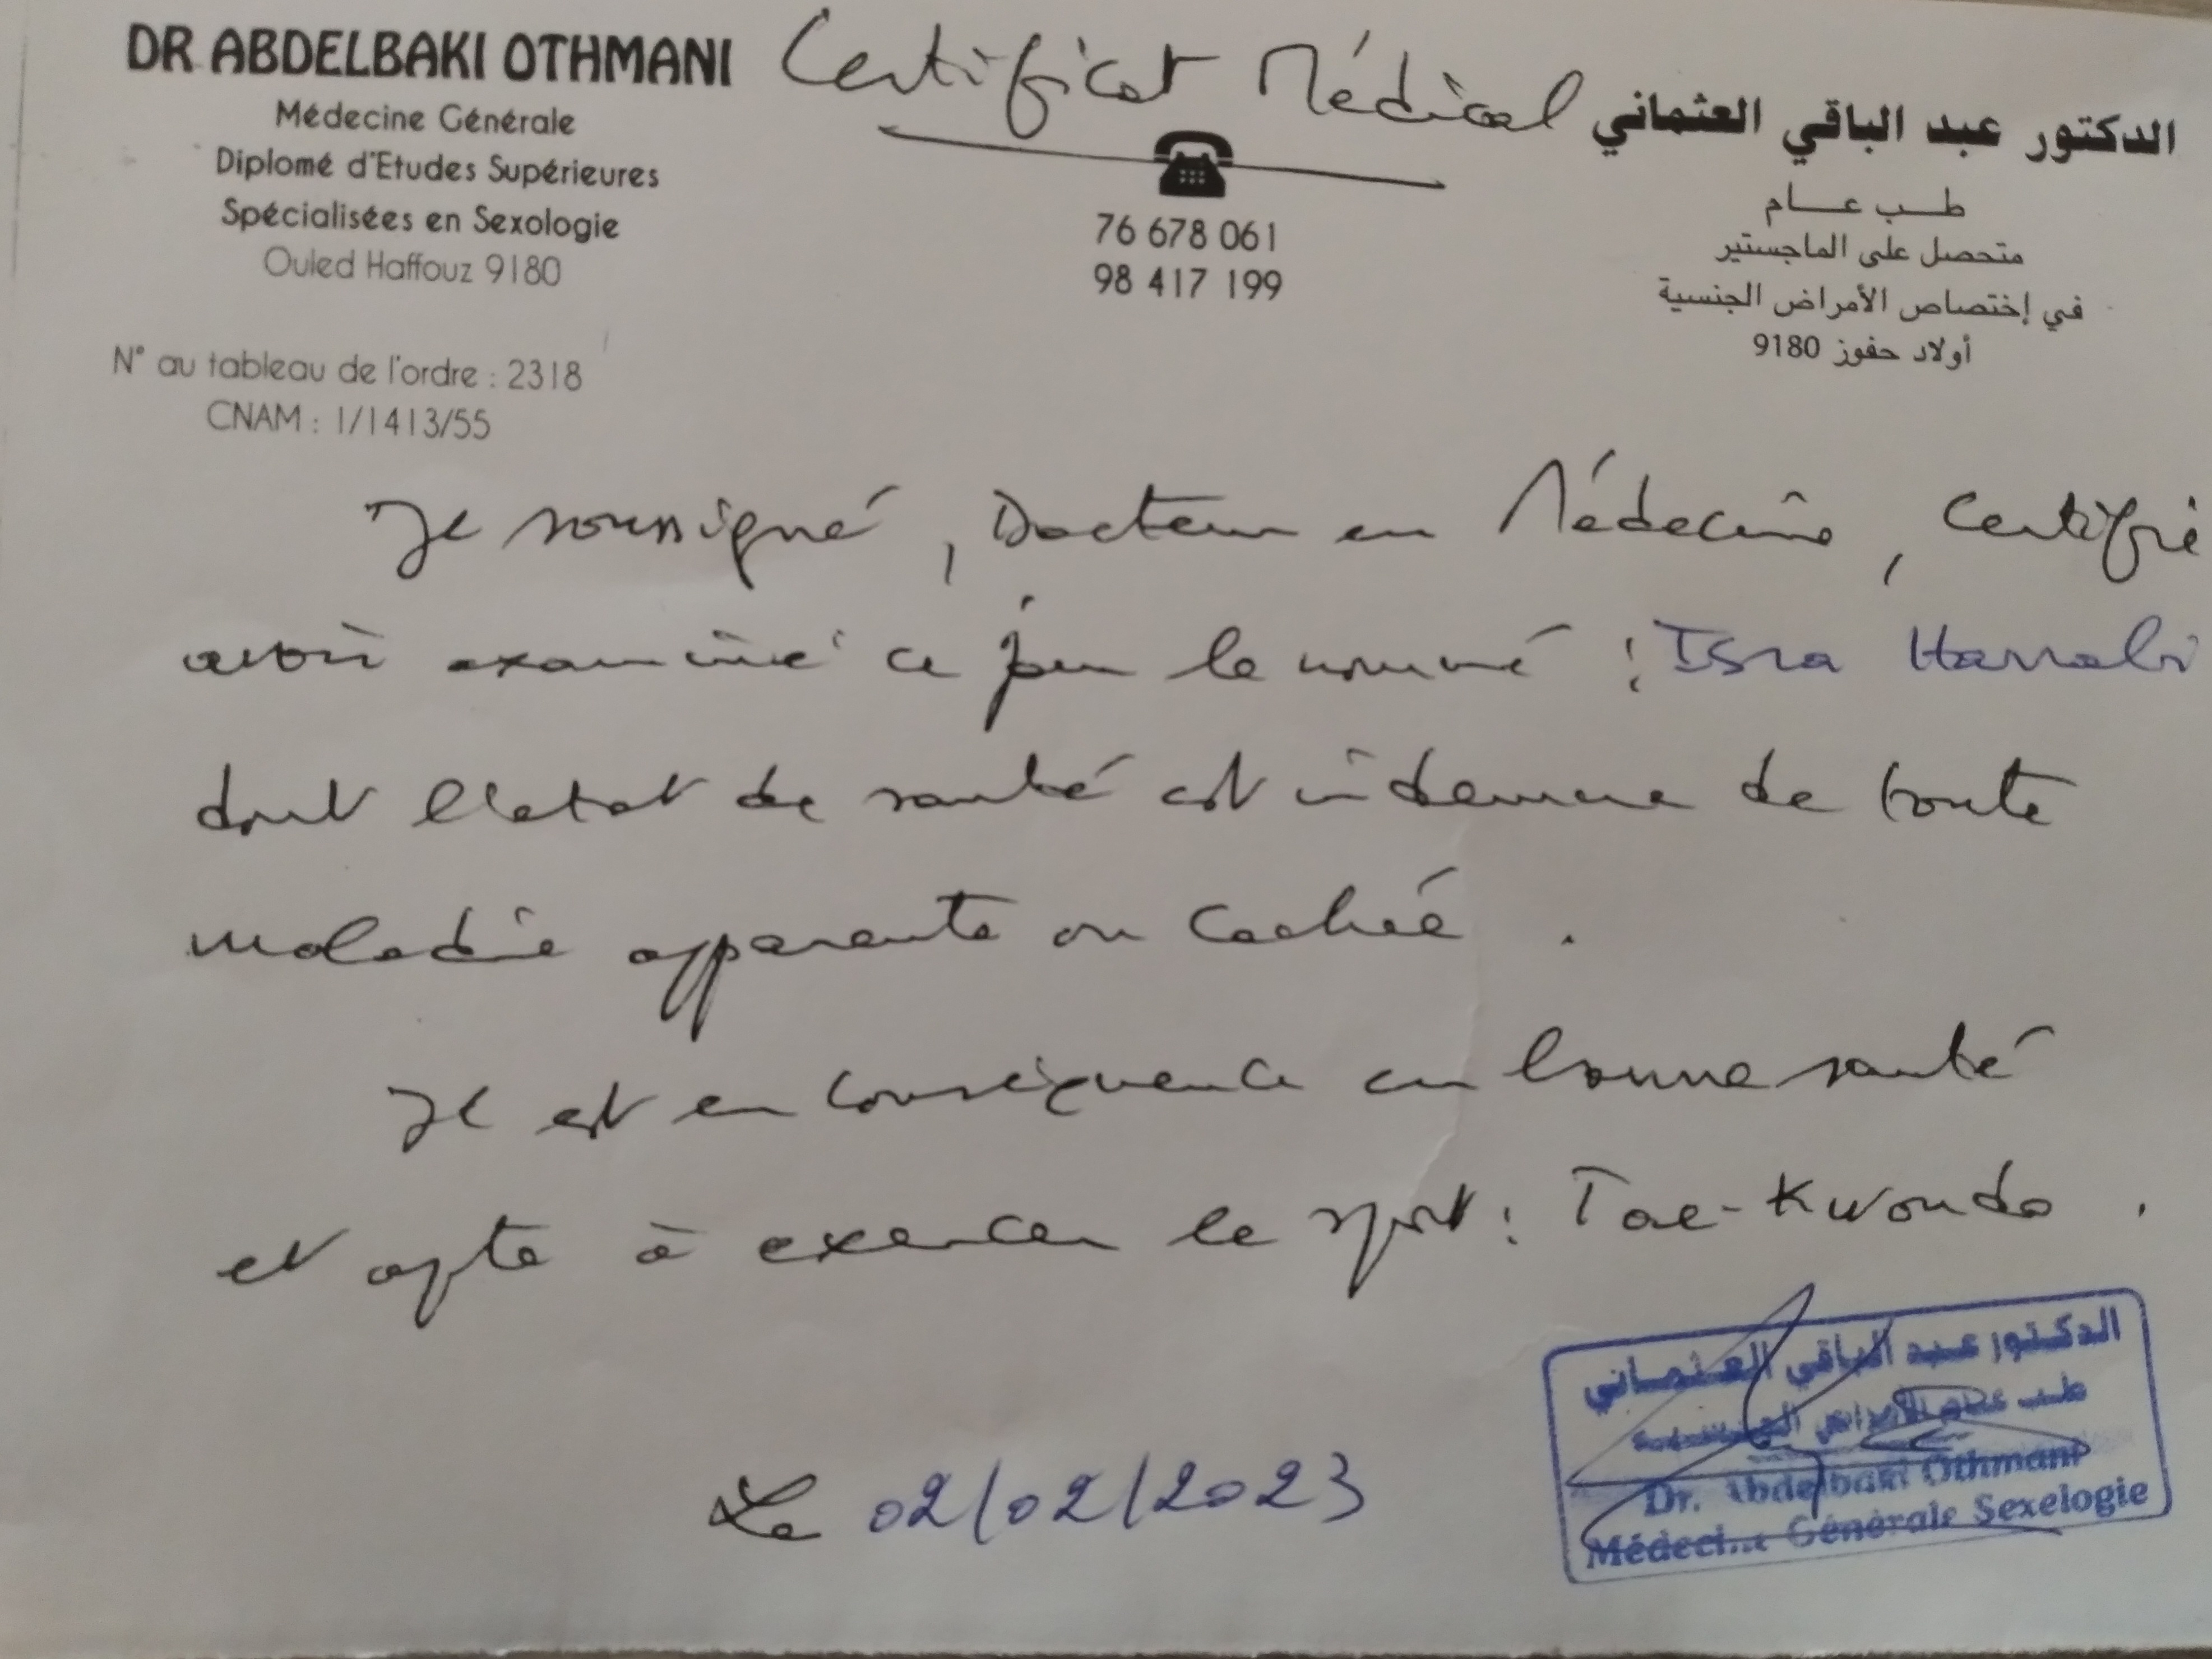 DR ABDELBAKI OTHMANI
Médecine Générale
Diplomé d'Etudes Supérieures
Spécialisées en Sexologie
Ouled Haffouz 9180
N° au tableau de l'ordre : 2318
CNAM : 1/1413/55
Certificat Médical
76 678 061
98 417 199
الدكتور عبد الباقي العثماني
طب عام
متحصل على الماجستير
في إختصاص الأمراض الجنسية
أولاد حفوز 9180
Je soussigné, Docteur en Médecine, Certifie
avoir examiné ce jour le nommé : Isra Harrabi
dont l'etat de santé est indemne de toute
maladie apparente ou cachée.
Il est en conséquence en bonne santé
et apte à exercer le sport : Tae-Kwondo.
Le 02/02/2023
الدكتور عبد الباقي العثماني
طب عام الأمراض الجنسية
Dr. Abdelbaki Othmani
Médecine Générale Sexelogie